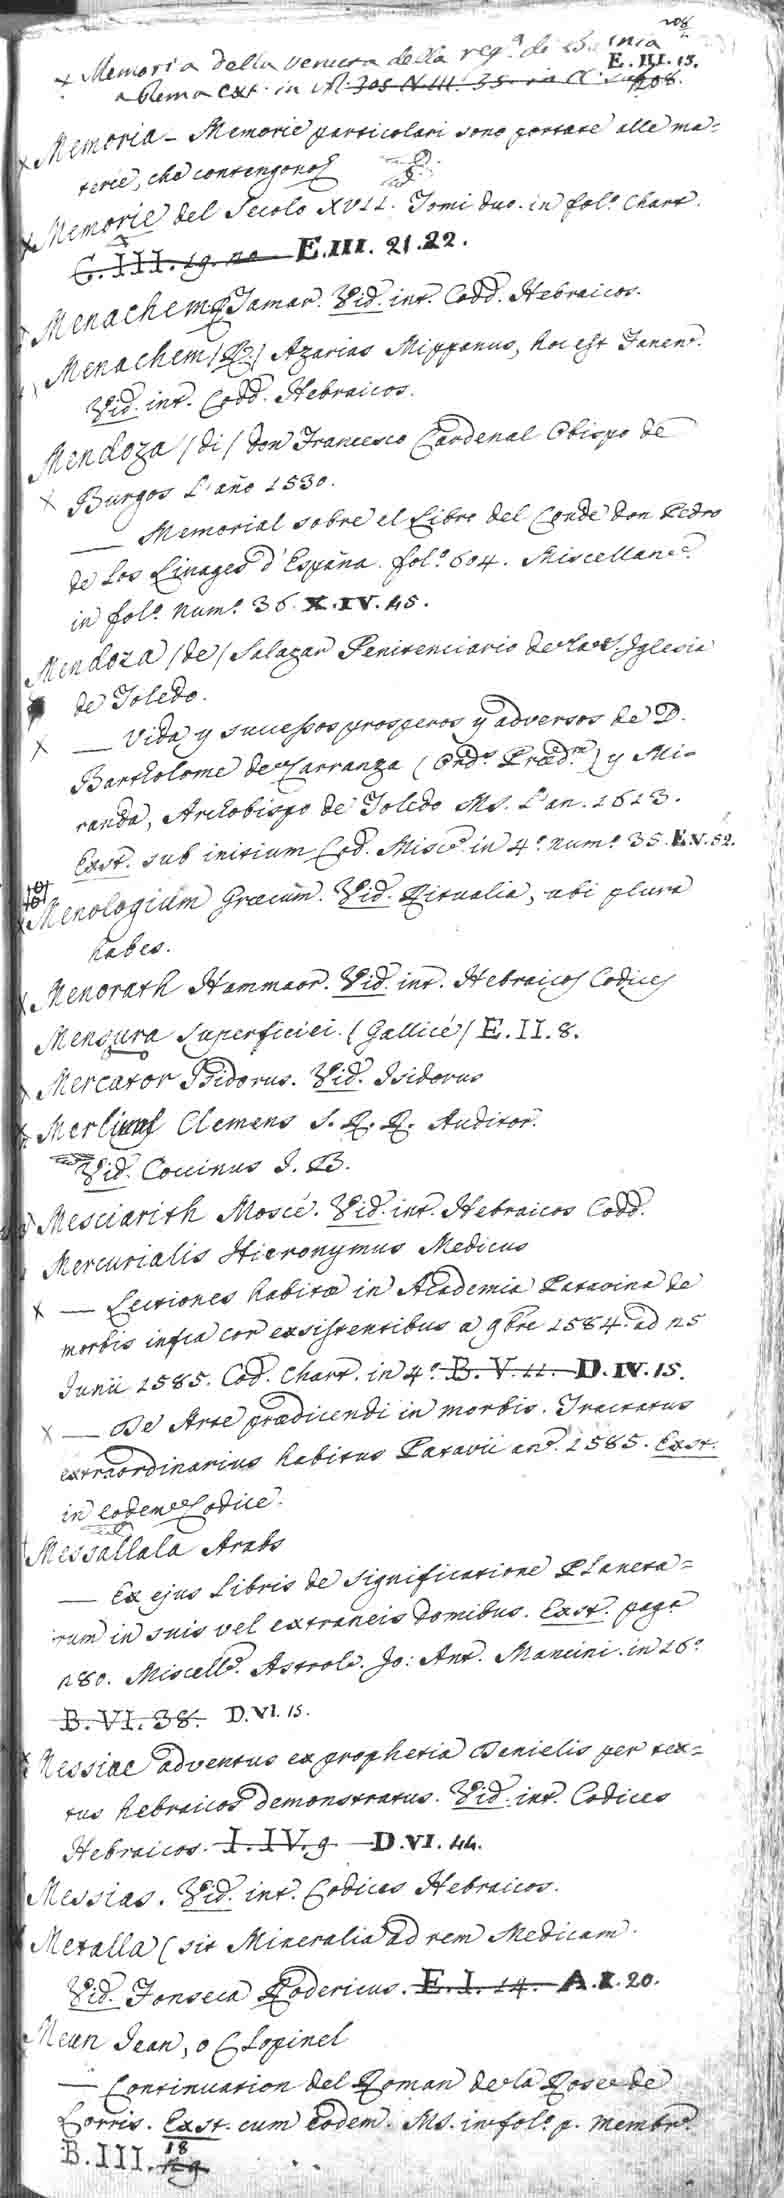 208
Memoria della venuta della reg.ª di
E.III.15.
a Roma ext. in 305 N.III. 35.
208.
Memoria - Memorie particolari sono portate alle ma=
terie, che contengono
Memorie del Secolo XVII. Tomi duo. in fol.º Chart.
C.III.19.20 E.III.21.22.
Menachem R. Tamar. Vid. int. Codd. Hebraicos.
Menachem (R.) Azarias Mippanus, hoc est Fanen.
Vid. int. Codd. Hebraicos.
Mendoza (di) don Francesco Cardenal Obispo de
Burgos l'año 1530.
— Memorial sobre el Libro del Conde don Pedro
de los Linages d'España. fol.º 604. Miscellan.
in fol.º num.º 36. X.IV.45.
Mendoza (de) Salazar Penitenciario de la Iglesia
de Toledo.
— Vida y sucessos prosperos y adversos de D.
Bartholome de Carranza (Ord.s Præd.m) y Mi=
randa, Archobispo de Toledo Ms. l'an. 1613.
Exst. sub initium Cod. Misc. in 4.º num.º 35. E.V.52.
Menologium Græcum. Vid. Ritualia, ubi plura
habes.
Menorath Hammaor. Vid. int. Hebraicos Codices
Mensura superficiei (Gallicé) E.II.8.
Mercator Isidorus. Vid. Isidorus
Merlinus Clemens S. R. R. Auditor.
Vid. Coccinus J. B.
Mesciarith Moscé. Vid. int. Hebraicos Codd.
Mercurialis Hieronymus Medicus
— Lectiones habitæ in Academia Patavina de
morbis infra cor exsistentibus a 9bre 1584. ad 25
Junii 1585. Cod. Chart. in 4.º B.V.11. D.IV.15.
— De Arte prædicendi in morbis. Tractatus
extraordinarius habitus Patavii an. 1585. Exst.
in eodem Codice.
Messallala Arabs
— Ex ejus Libris de significatione Planeta=
rum in suis vel extraneis domibus. Exst. pag.
280. Miscell. Astrol. Jo: Ant. Mancini. in 16.º
B.VI.38. D.VI.15.
Messiae adventus ex prophetia Danielis per tex=
tus hebraicos demonstratus. Vid. int. Codices
Hebraicos. I.IV.9 D.VI.44.
Messias. Vid. int. Codices Hebraicos.
Metalla (sit Mineralia) ad rem Medicam.
Vid. Fonseca Rodericus. E.I.14. A.X.20.
Meun Jean, o Clopinel
— Continuation del Roman de la Rose de
Lorris. Exst. cum eodem. Ms. in fol.º p. membr.
B.III.18